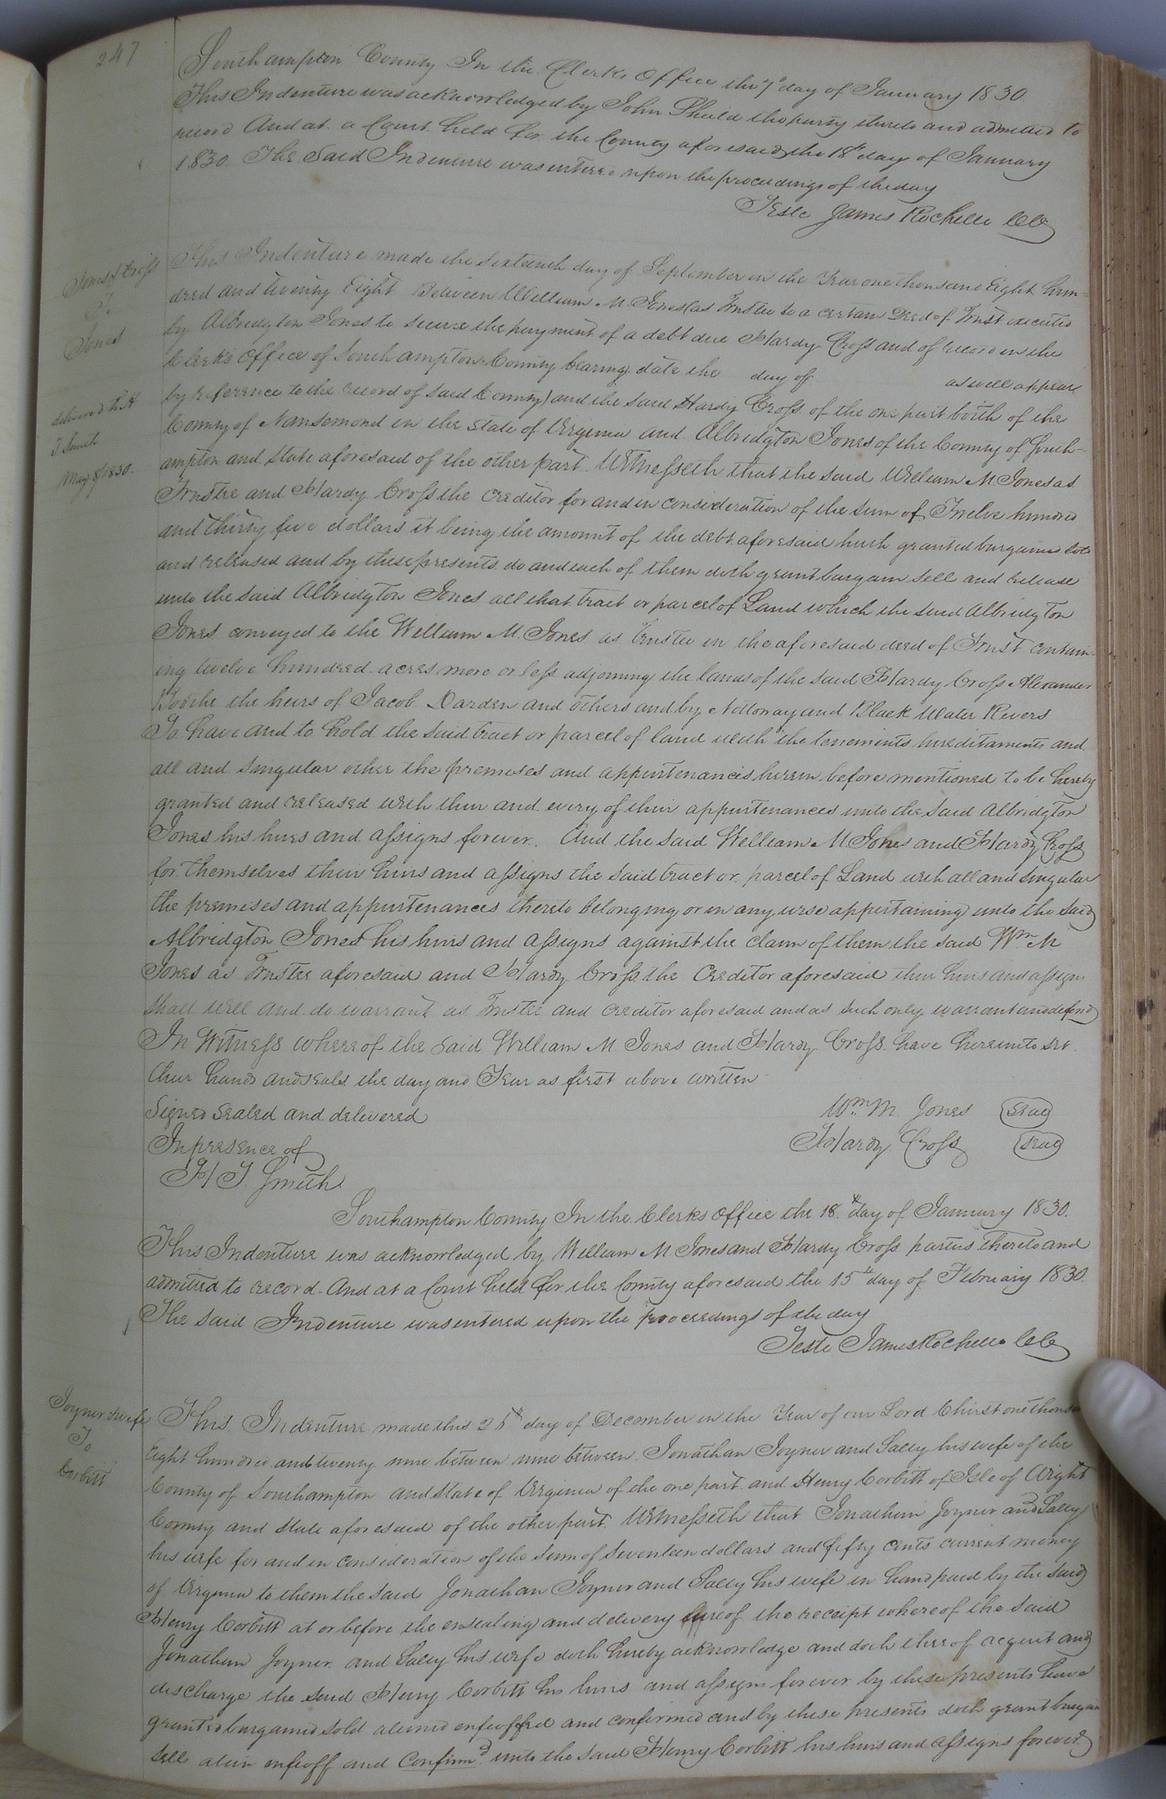 247
Southampton County In the Clerks Office the 7th day of January 1830.
This Indenture was acknowledged by John Sheild the party thereto and admitted to
record And at a Court held for the County aforesaid the 18th day of January
1830. The Said Indenture was entered upon the proceedings of the day
Teste James Rochelle CC
Jones & Cross
To
Jones
delivered to H
T Smith
May 8 1830.
This Indenture made the sixteenth day of September in the Year one thousand Eight hun-
dred and twenty Eight Between William M Jones (as Trustee to a certain Deed of Trust executed
by Albridgton Jones to secure the payment of a debt due Hardy Cross and of record in the
Clerks Office of Southampton County bearing date the day of as will appear
by reference to the record of said County) and the said Hardy Cross of the one part both of the
County of Nansemond in the State of Virginia and Albridgton Jones of the County of South-
ampton and State aforesaid of the other part. Witnesseth that the said William M Jones as
Trustee and Hardy Cross the Creditor for and in consideration of the sum of Twelve hundred
and thirty five dollars it being the amount of the debt aforesaid hath granted bargained sold
and released and by these presents do and each of them doth grant bargain sell and release
unto the said Albridgton Jones all that tract or parcel of Land which the said Albridgton
Jones conveyed to the William M. Jones as Trustee in the aforesaid deed of Trust contain-
ing twelve hundred acres more or less adjoining the lands of the said Hardy Cross Alexander
the heirs of Jacob Darden and others and by Nottoway and Black Water Rivers
To have and to hold the said tract or parcel of land with the tenements hereditaments and
all and singular other the premises and appurtenances herein before mentioned to be hereby
granted and released with their and every of their appurtenances unto the said Albridgton
Jones his heirs and assigns forever. And the said William M Jones and Hardy Cross
for themselves their heirs and assigns the said tract or parcel of Land with all and singular
the premises and appurtenances thereto belonging or in any wise appertaining unto the said
Albridgton Jones his heirs and assigns against the claim of them the said Wm M
Jones as Trustee aforesaid and Hardy Cross the Creditor aforesaid their heirs and assigns
shall will and do warrant as Trustee and Creditor aforesaid and as such only warrant and defend
In Witness whereof the said William M Jones and Hardy Cross have hereunto set
their hands and seals the day and Year as first above written
Signed sealed and delivered
In presence of
H T Smith
Wm M. Jones Seal
Hardy Cross Seal
Southampton County In the Clerks Office the 18th day of January 1830.
This Indenture was acknowledged by William M Jones and Hardy Cross parties thereto and
admitted to record. And at a Court held for the County aforesaid the 15th day of February 1830.
The said Indenture was entered upon the proceedings of the day
Teste James Rochelle CC
Joyner & wife
To
Corbitt
This Indenture made this 25th day of December in the Year of our Lord Christ one thousand
Eight hundred and twenty nine between nine between Jonathan Joyner and Sally his wife of the
County of Southampton and State of Virginia of the one part and Henry Corbitt of Isle of Wight
County and State aforesaid of the other part. Witnesseth that Jonathan Joyner and Sally
his wife for and in consideration of the sum of Seventeen dollars and fifty cents current money
of Virginia to them the said Jonathan Joyner and Sally his wife in hand paid by the said
Henry Corbitt at or before the ensealing and delivery hereof the receipt whereof the said
Jonathan Joyner and Sally his wife doth hereby acknowledge and doth thereof acquit and
discharge the said Henry Corbitt his heirs and assigns forever by these presents have
granted bargained sold aliened enfeoffed and confirmed and by these presents doth grant bargain
sell alien enfeoff and Confirmd unto the said Henry Corbitt his heirs and assigns forever